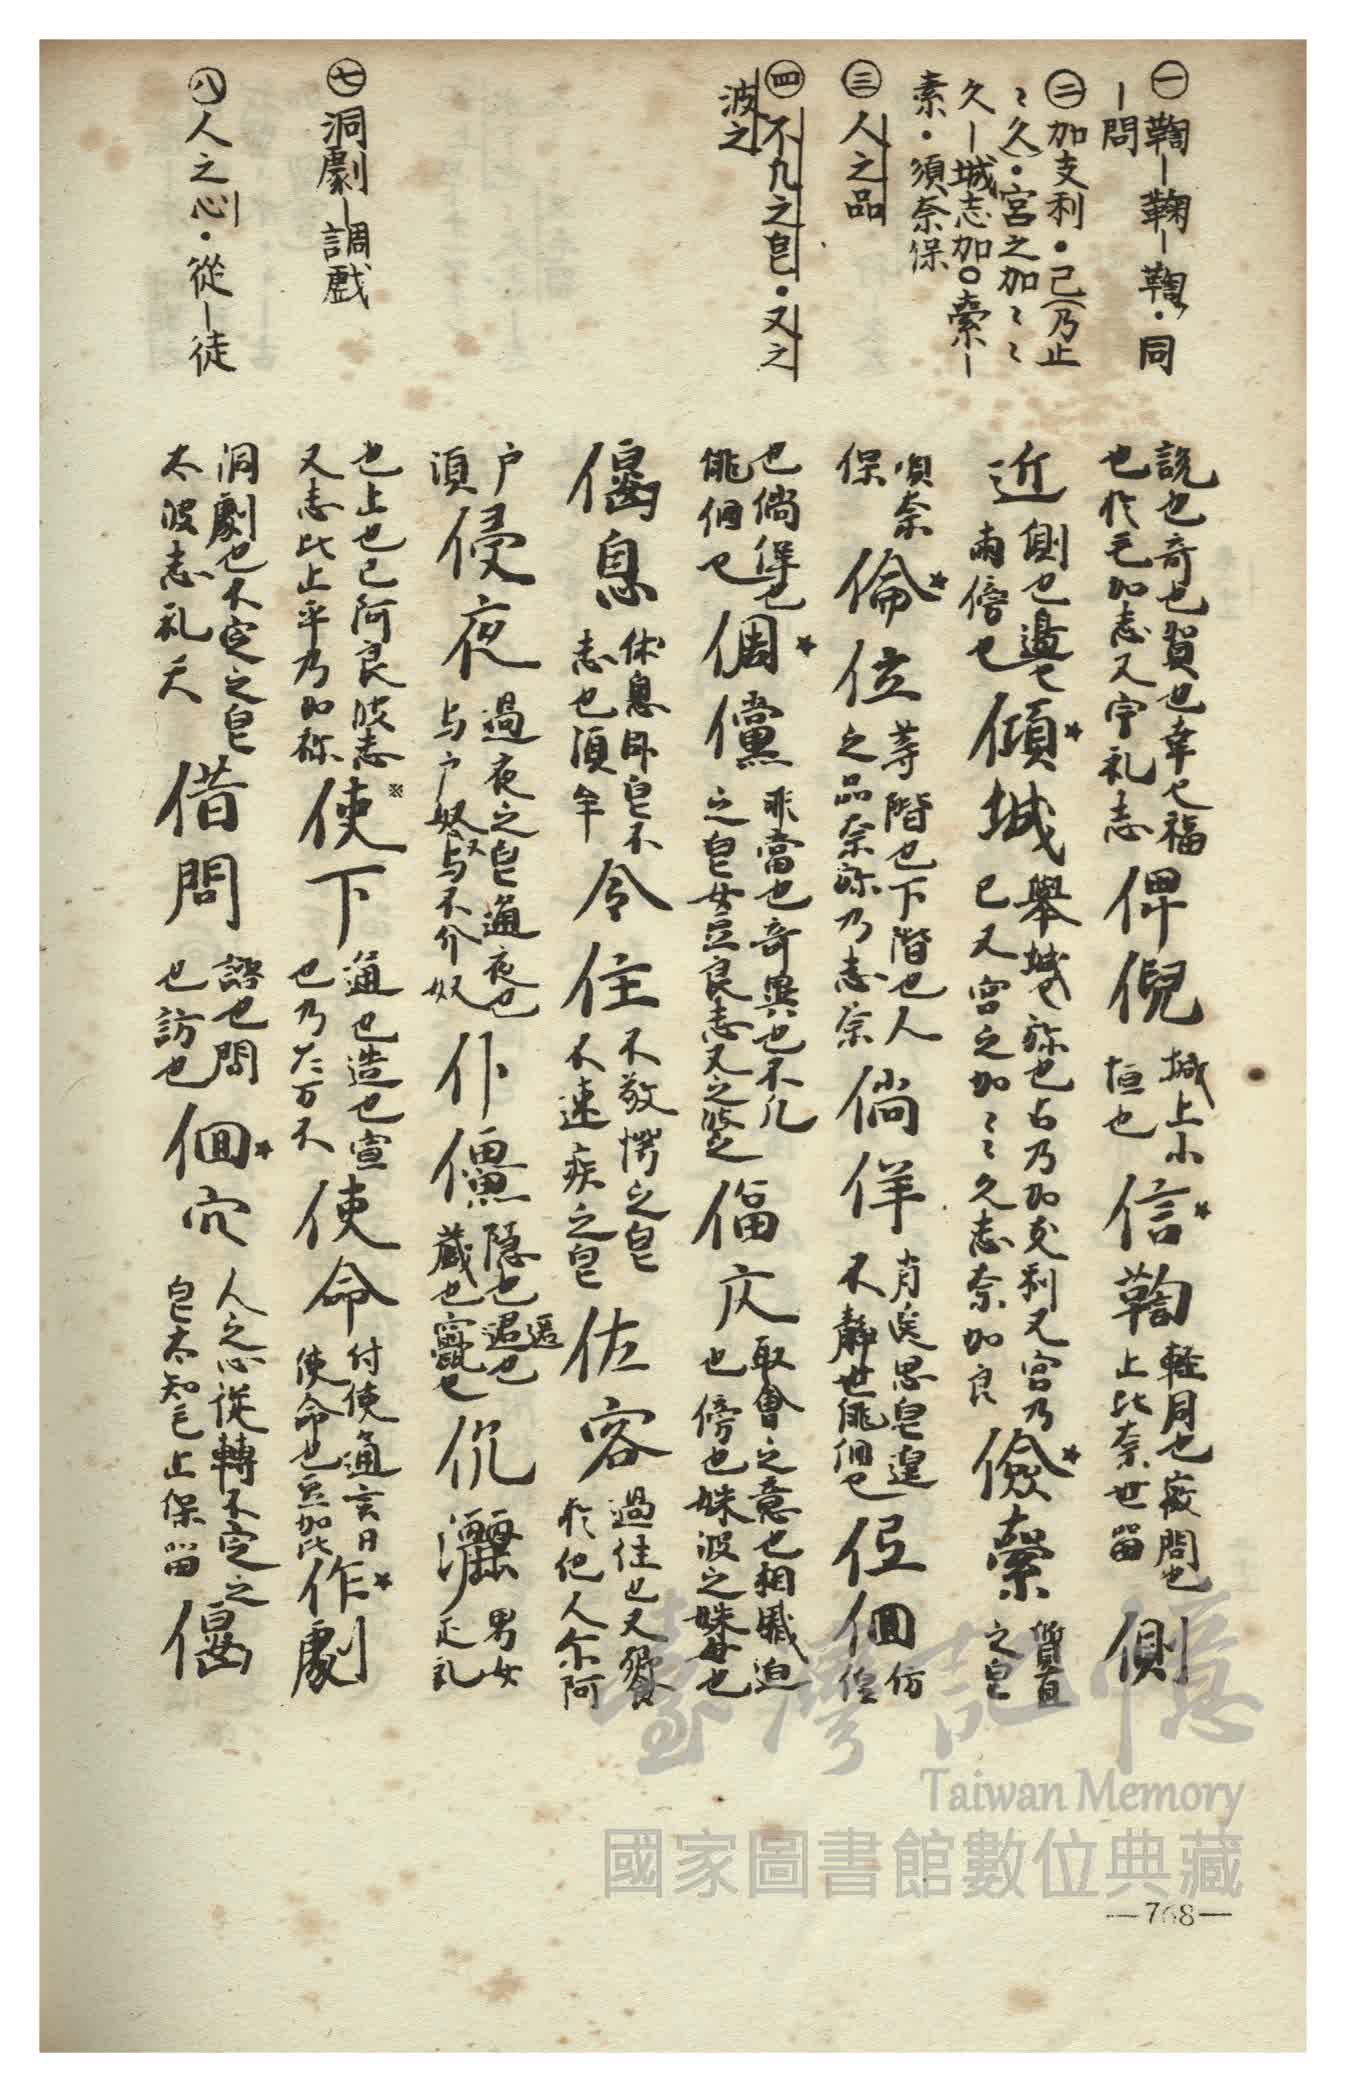 ㊀鞫ー鞠ー鞫・同
ー問
㊁加支利・己(乃止
ミ久)・宮之加ミミ
久ー城志加〇橐ー
素・須奈保
㊂人之品
㊃不凡之皃・又之
波之
㊆洞劇ー調戲
㊇人之心・從ー徒
説也奇也賀也幸也福
也於毛加志又宇礼志
俾倪
城上小
垣也
信鞫
軽月也 問也
上比奈世留
側
近
側也邊也
兩傍也
傾城
舉城也弥也占乃加支利又宮乃
己又宮之加ミミ久志奈加良
儉
質直
之皃
須奈
保
倫位
等階也下階也人
之品奈弥乃志奈
倘佯
不静世俳佪也
佪
仿
偟
也倘佯也
俳佪也
倜儻
非當也奇異也不凡
之皃女豆良志又之波之
偪仄
取會之意也相戚迫
也傍也姝波之姝母也
偃息
休息臥皃不
志也須牟
令住
不敬愕之皃
不速疾之皃
佐容
過住也又饗
於他人尓阿
户
須
侵夜
過夜之皃通夜也
与户奴又与不介奴
仆僵
隱也遏也
藏也竄也
遏
男女
也上也己阿良波志
又志比上乎乃加祢
使下
通也造也宣
也乃太万不
使命
付使通言曰
使命也豆加比
作劇
洞劇也不定之皃
太波志礼天
借問
諮也問
也訪也
佪穴
人之心從轉不定之
皃太知毛止保留
偃
臺灣記憶
Taiwan Memory
國家圖書館數位典藏
—768—